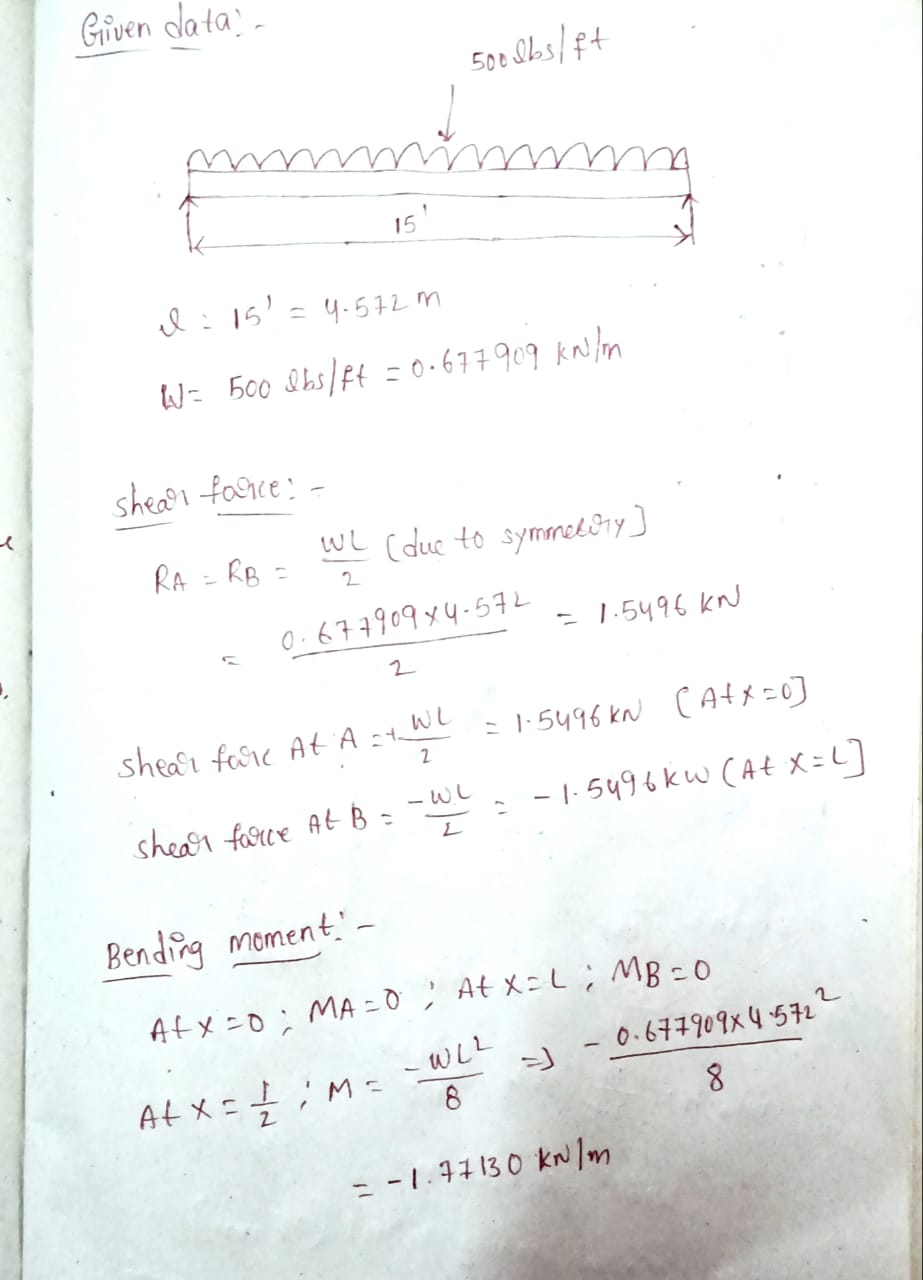 Given data:-
500 lbs/ft
15'
l = 15' = 4.572 m
W = 500 lbs/ft = 0.677909 kN/m
shear force:-
RA = RB = WL/2 (due to symmetry]
= 0.677909×4.572/2 = 1.5496 kN
shear force At A = + WL/2 = 1.5496 kN [At x=0]
shear force At B = -WL/2 = -1.5496 kw (At x=L]
Bending moment:-
At x=0; MA=0; At x=L; MB=0
At x = 1/2; M = -WL²/8 => -0.677909×4.572²/8
= -1.77130 kN/m